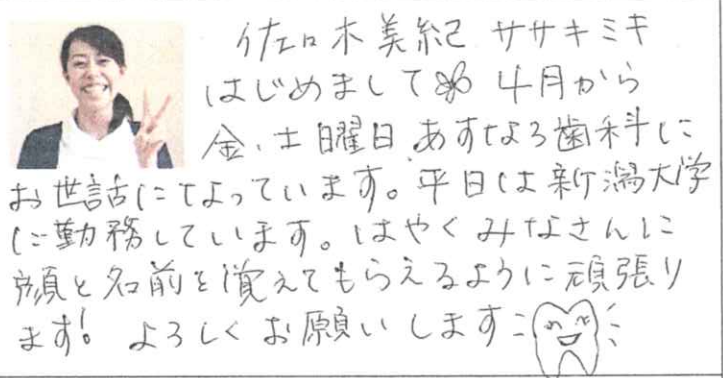 佐々木美紀 ササキミキ
はじめまして 4月から
金、土曜日あすなろ歯科に
お世話になっています。平日は新潟大学
に勤務しています。はやくみなさんに
顔と名前を覚えてもらえるように頑張り
ます! よろしくお願いします